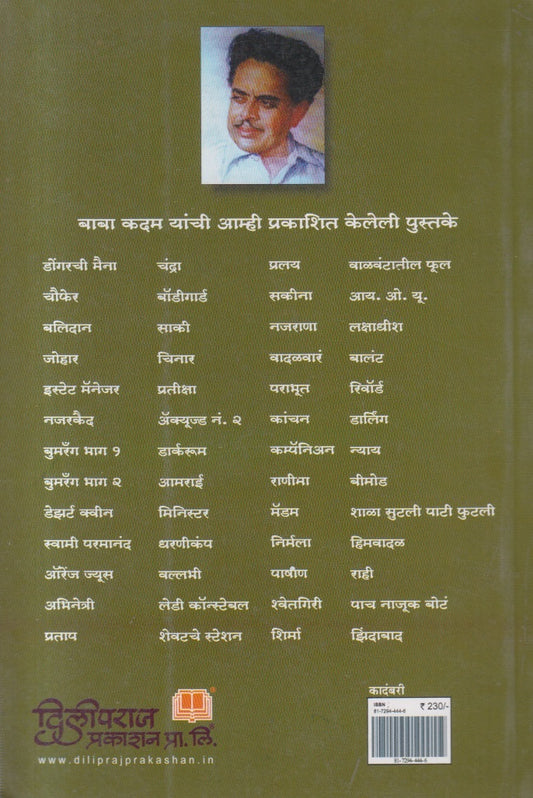 बाबा कदम यांची आम्ही प्रकाशित केलेली पुस्तके
डोंगरची मैना चंद्रा प्रलय वाळवंटातील फूल
चौफेर बॉडीगार्ड सकीना आय. ओ. यू.
बलिदान साकी नजराणा लक्षाधीश
जोहार चिनार वादळवारं बालंट
इस्टेट मॅनेजर प्रतीक्षा पराभूत रिवॉर्ड
नजरकैद ॲक्यूज्ड नं. २ कांचन डार्लिंग
बुमरँग भाग १ डार्करूम कम्पॅनिअन न्याय
बुमरँग भाग २ आमराई राणीमा बीमोड
डेझर्ट क्वीन मिनिस्टर मॅडम शाळा सुटली पाटी फुटली
स्वामी परमानंद धरणीकंप निर्मला हिमवादळ
ऑरेंज ज्यूस वल्लभी पाषाण राही
अभिनेत्री लेडी कॉन्स्टेबल श्वेतगिरी पाच नाजूक बोटं
प्रताप शेवटचे स्टेशन शिर्मा झिंदाबाद
कादंबरी
ISBN
81-7294-444-6
₹ 230/-
81-7294-444-6
दिलीपराज
प्रकाशन प्रा. लि.
www.diliprajprakashan.in